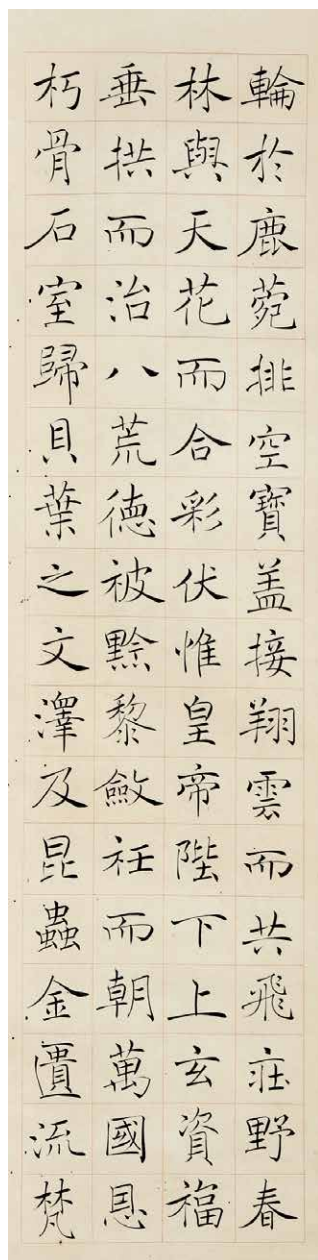 輪於鹿菀排空寶盖接翔雲而共飛庄野春
林與天花而合彩伏惟皇帝陛下上玄資福
垂拱而治八荒德被黔黎斂衽而朝萬國恩
朽骨石室歸貝葉之文澤及昆蟲金匱流梵